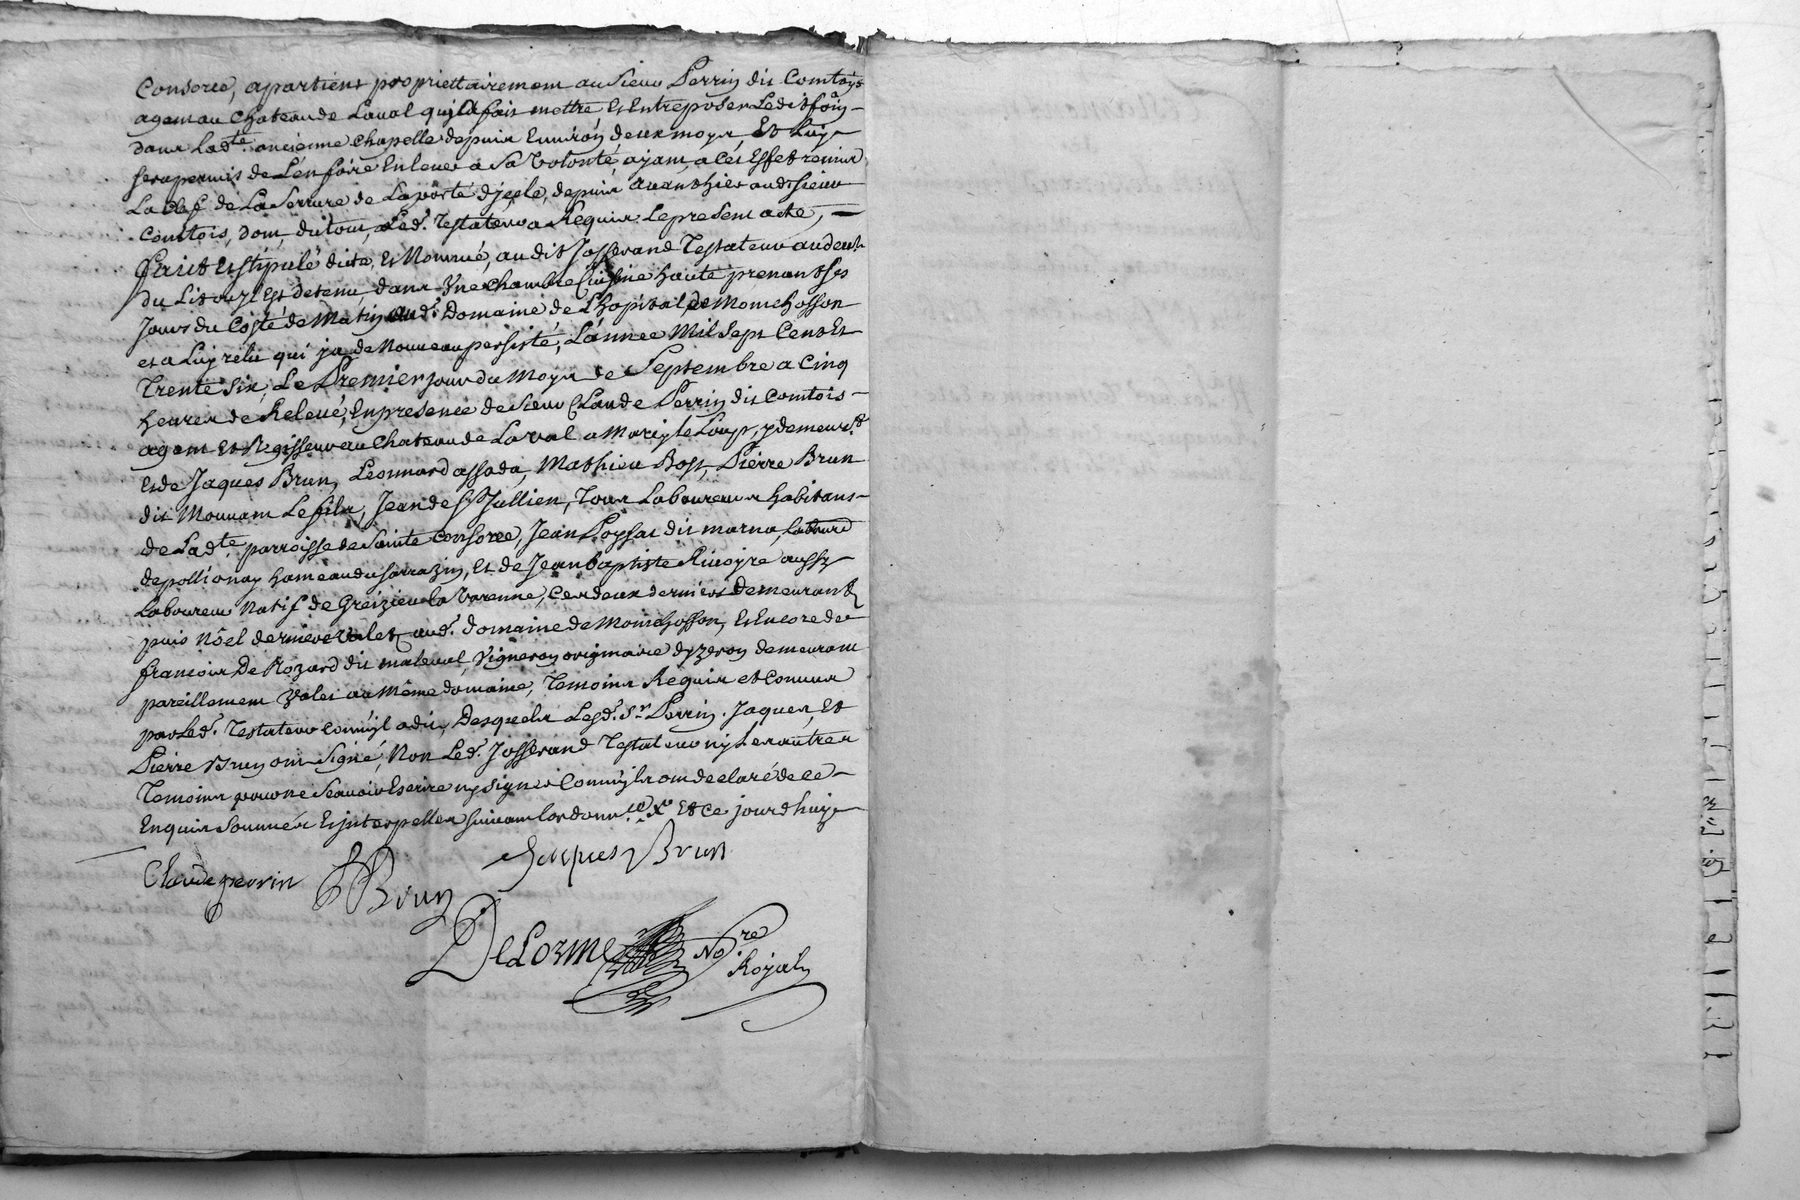 Consorce, apartient propriettairement au sieur Perrin dit Comtois
agent au Chateau de Laval quy l'a fait mettre, et Entreposer Ledit foin
dans lad.te ancienne Chapelle depuis Environ deux moys Et Luy
sera permis de L'en faire Enlever a sa volonté, ayant, a cet Effet remis
La Clef de La Serrure de La porte d'jcele, depuis avant hier aud. sieur
Comtois, dont, du tout, Led. Testateur a Requis Le present acte,
Faict Et stipulé dicté, et Nommé, audit Josserand Testateur au deut
du Lit ou yl Est detenu, dans Vne chambre Cuisine haute prenant ses
Jours du Costé de Matin aud. Domaine de L'hopital de Montchosson
et a Luy relu qui ja de Nouveau persisté, L'annee Mil Sept Cent Et
Trente Six, Le Premier jour du Moys de Septembre a Cinq
heures de Relevé, En presence de sieur Claude Perrin dit Comtois
agent Et Regisseur au Chateau de Laval a Marcy le Loup, y demeurt
Et de Jaques Brun, Leonnard assada, Mathieu Bost, Pierre Brun
dit Mouvant Le fils, Jean de St Jullien, Tous Laboureurs habitans
de Lad.te parroisse de Sainte Consorce, Jean Poysat dit marna, Laboure
de pollionay hameau du sarrazin, et de Jean baptiste Ricoyre aussy
Laboureur Natif de Greizieu la Varenne, Ces deux derniers Demeurant
puis Nöel dernier valet aud. domaine de Montchosson, Et Encore de
francois De Rozard dit maleval, Vigneron originaire d'yzeron demeurant
pareillement Valet au Même domaine, Temoins Requis et Connus
par Led. Testateur Comm'yl a dit, Desquels Lesd. Sr Perrin. Jaques, Et
Pierre Brun ont Signé, Non Led. Josserand Testateur ny Les autres
Temoins pour ne Scavoir Escrire ny signer Comm'yls ont declaré de ce
Enquis Sommés Et jnterpellés suivant lordonn.ce X Et Ce jourd'huy
Claude perrin
PBrun
Jacques Brun
DeLorme
No.re
Royal